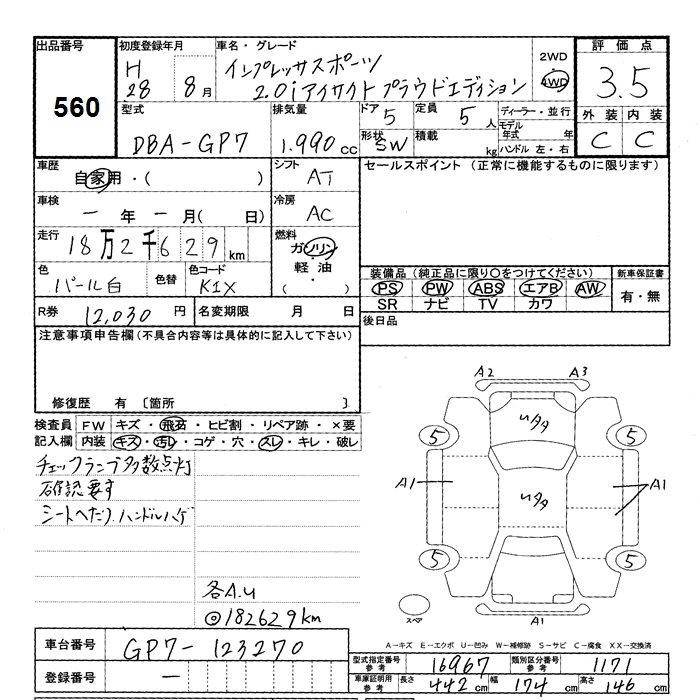 出品番号 初度登録年月 車名・グレード 評価点
560
H28 8月
インプレッサスポーツ
2.0iアイサイトプラウドエディション
2WD
4WD
3.5
型式 排気量 ドア 定員 ディーラー・並行 外装 内装
DBA-GP7 1.990cc 5 5人
モデル年式 年
形状 SW 積載 kg ハンドル 左・右
C C
車歴 シフト セールスポイント(正常に機能するものに限ります)
自家用・( ) AT
車検 冷房
一年一月( 日) AC
走行 燃料
18万2千629km ガソリン
軽油
・
( )
色 色替 色コード
パール白 K1X
装備品(純正品に限り○をつけてください) 新車保証書
PS PW ABS エアB AW 有・無
SR ナビ TV カワ
R券 12,030円 名変期限 月 日
後日品
注意事項申告欄(不具合内容等は具体的に記入して下さい)
修復歴 有〔箇所 〕
検査員 FW キズ・飛石・ヒビ割・リペア跡・×要
記入欄 内装 キズ・汚レ・コゲ・穴・スレ・キレ・破レ
チェックランプ多数点灯
確認要す
シートへたり、ハンドルハゲ
各A.U
◎182629km
A2 A3
5 5
A1 A1
5 5
スペア
A1
A-キズ E-エクボ U-凹み W-補修跡 S-サビ C-腐食 XX-交換済
車台番号 GP7-123270
登録番号 一
型式指定番号参考 16967 類別区分番号参考 1171
車庫証明用参考 長さ 442cm 幅 174cm 高さ 146cm